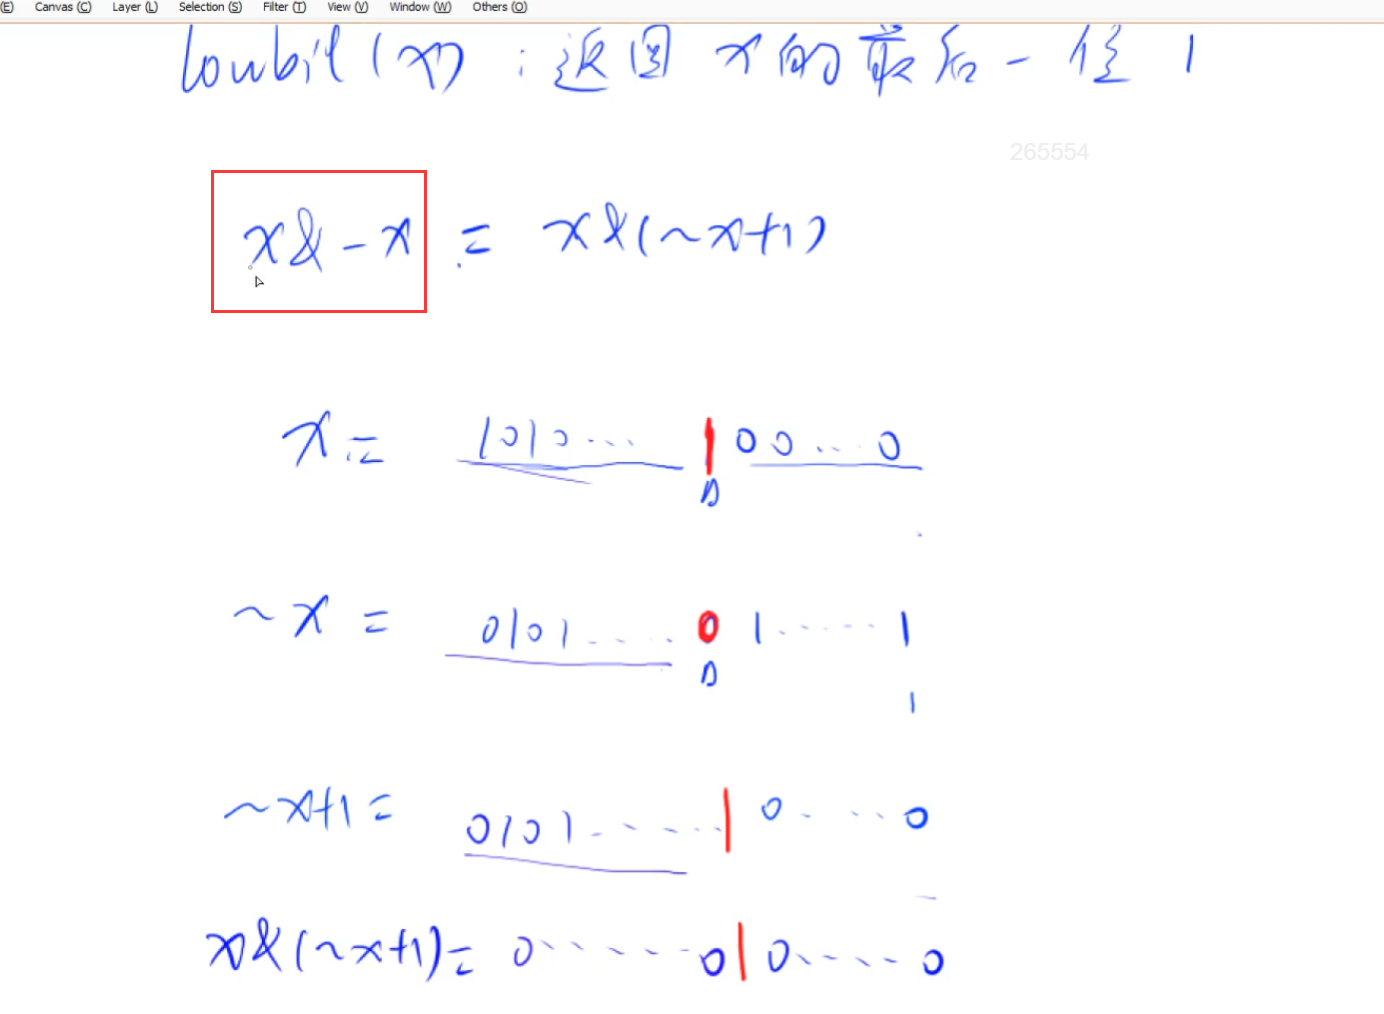 (E) Canvas (C) Layer (L) Selection (S) Filter (T) View (V) Window (W) Others (O)
lowbit(x) : 返回 x 的最后一位 1
265554
x & -x = x & (~x+1)
x = 1010... 1 00...0
~x = 0101.... 0 1......1
1
~x+1 = 0101...... 1 0....0
x & (~x+1) = 0......0 1 0.....0